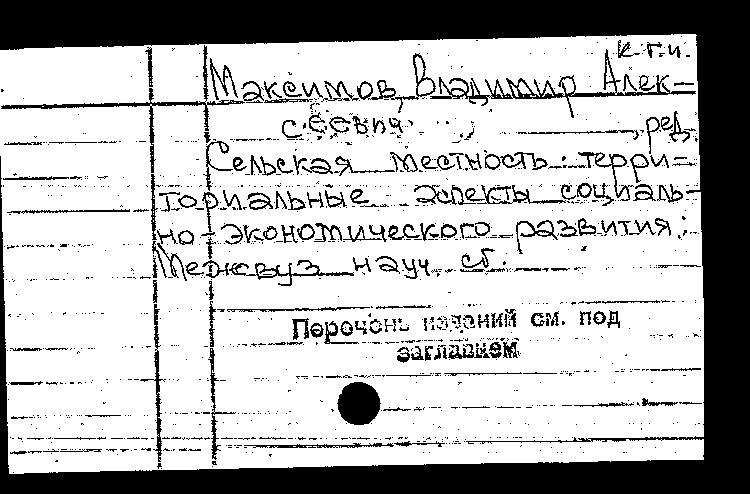 к.г.н.
Максимов, Владимир Алек-
сеевич, ред.
Сельская местность: терри-
ториальные аспекты социаль-
но-экономического развития:
Межвуз. науч. сб.
Перечень изданий см. под
заглавием